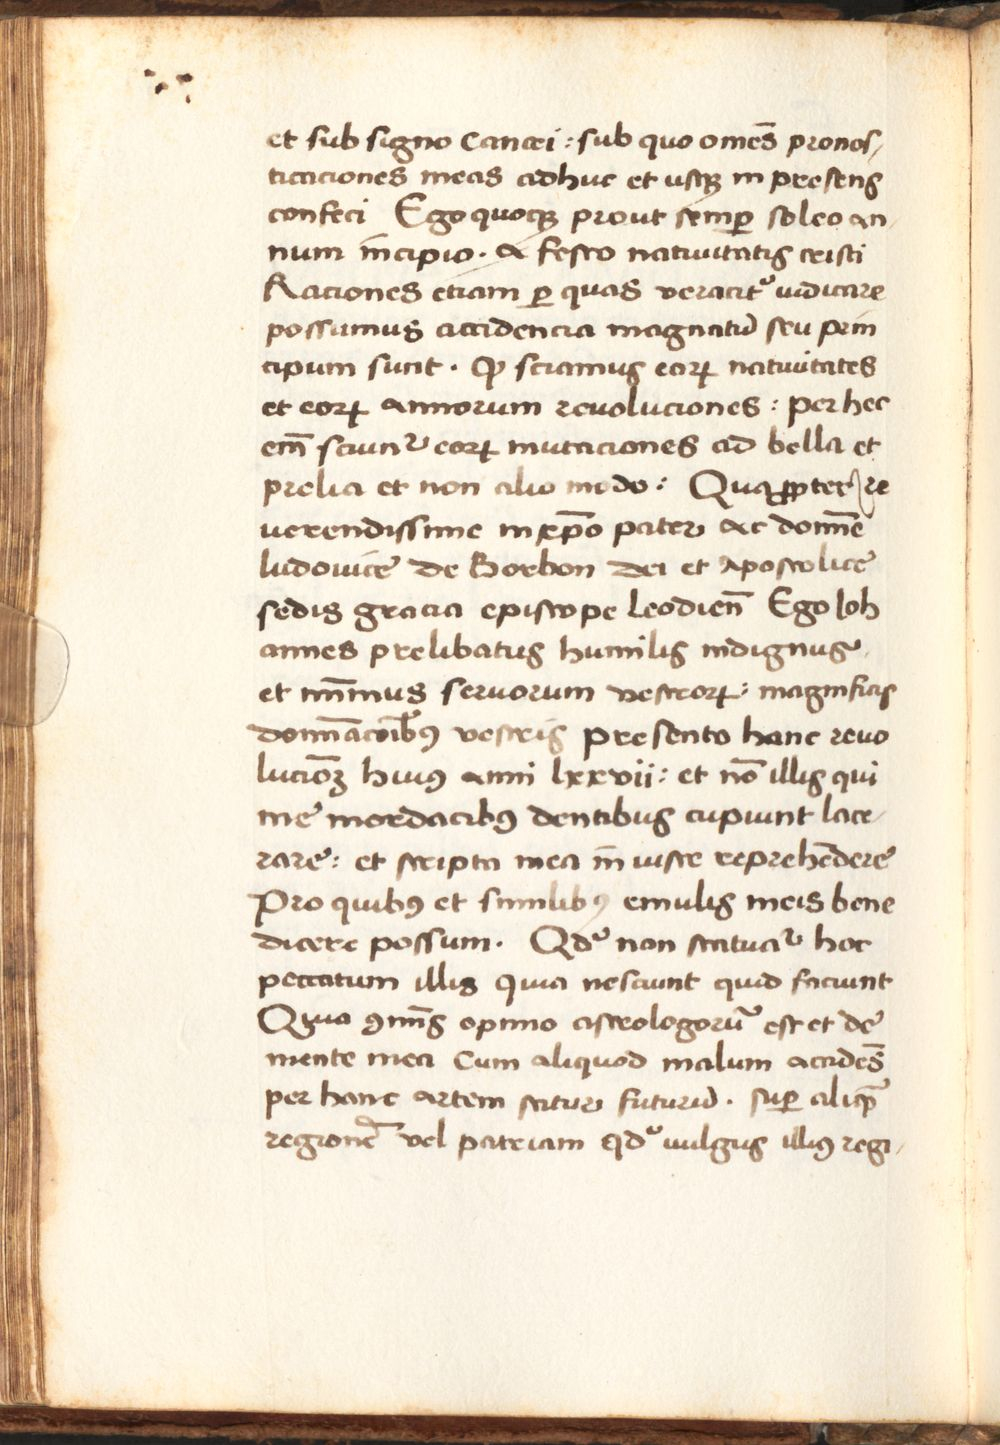 et sub signo Cancri : sub quo omēs pronos-
ticaciones meas adhuc et usqꝫ in presens
confeci Ego quoqꝫ prout semꝑ soleo an-
num incipio · A festo nativitatis cristi
Raciones etiam ꝑ quas veracit᷑ iudicare
possumus accidencia magnatū seu prin
cipum sunt · Ꝙ sciamus eoꝝ nativitates
et eoꝝ annorum revoluciones : per hec
em̄ sciunt᷑ eoꝝ mutaciones ad bella et
prelia et non alio modo : Quaꝓpter re
verendissime in xp̄o pater ac domīe
ludovice de Borbon dei et Apostolice
sedis gracia episcope leodien̄ Ego Ioh
annes prelibatus humilis indignus
et mīimus servorum vestroꝝ : magnificis
domīacoībꝰ vestris presento hanc revo
lucioēꝫ huiꝰ anni lxxvii : et nō illis qui
me mordacibꝰ dentibus cupiunt lace-
rare : et scripta mea īniuste reprehēdere
Pro quibꝰ et similibꝰ emulis meis bene
dicere possum · Qd᷑ non statuat᷑ hoc
peccatum illis Quia nesciunt quid faciunt
Quia ꝯmīs opinio astrologorū est et de
mente mea Cum aliquod malum accidēs
per hanc artem scitur futurū · suꝑ aliqu̅a
regionē vel patriam qd᷑ vulgus illiꝰ regi-